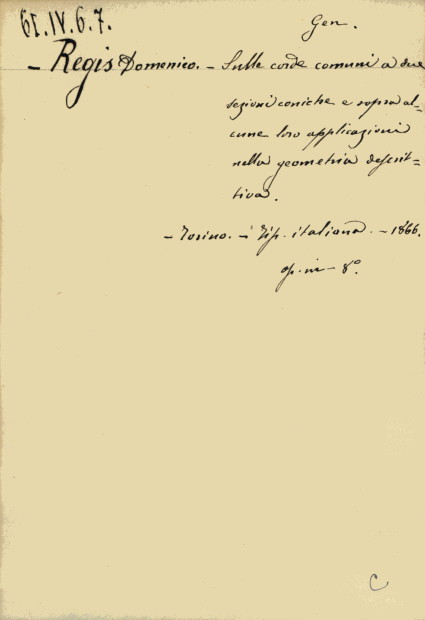 61.IV.6.7.
Gen.
- Regis Domenico. - Sulle corde comuni a due
sezioni coniche e sopra al-
cune loro applicazioni
nella geometria descrit-
tiva.
- Torino. - Tip. italiana. - 1866.
op. in - 8°.
C